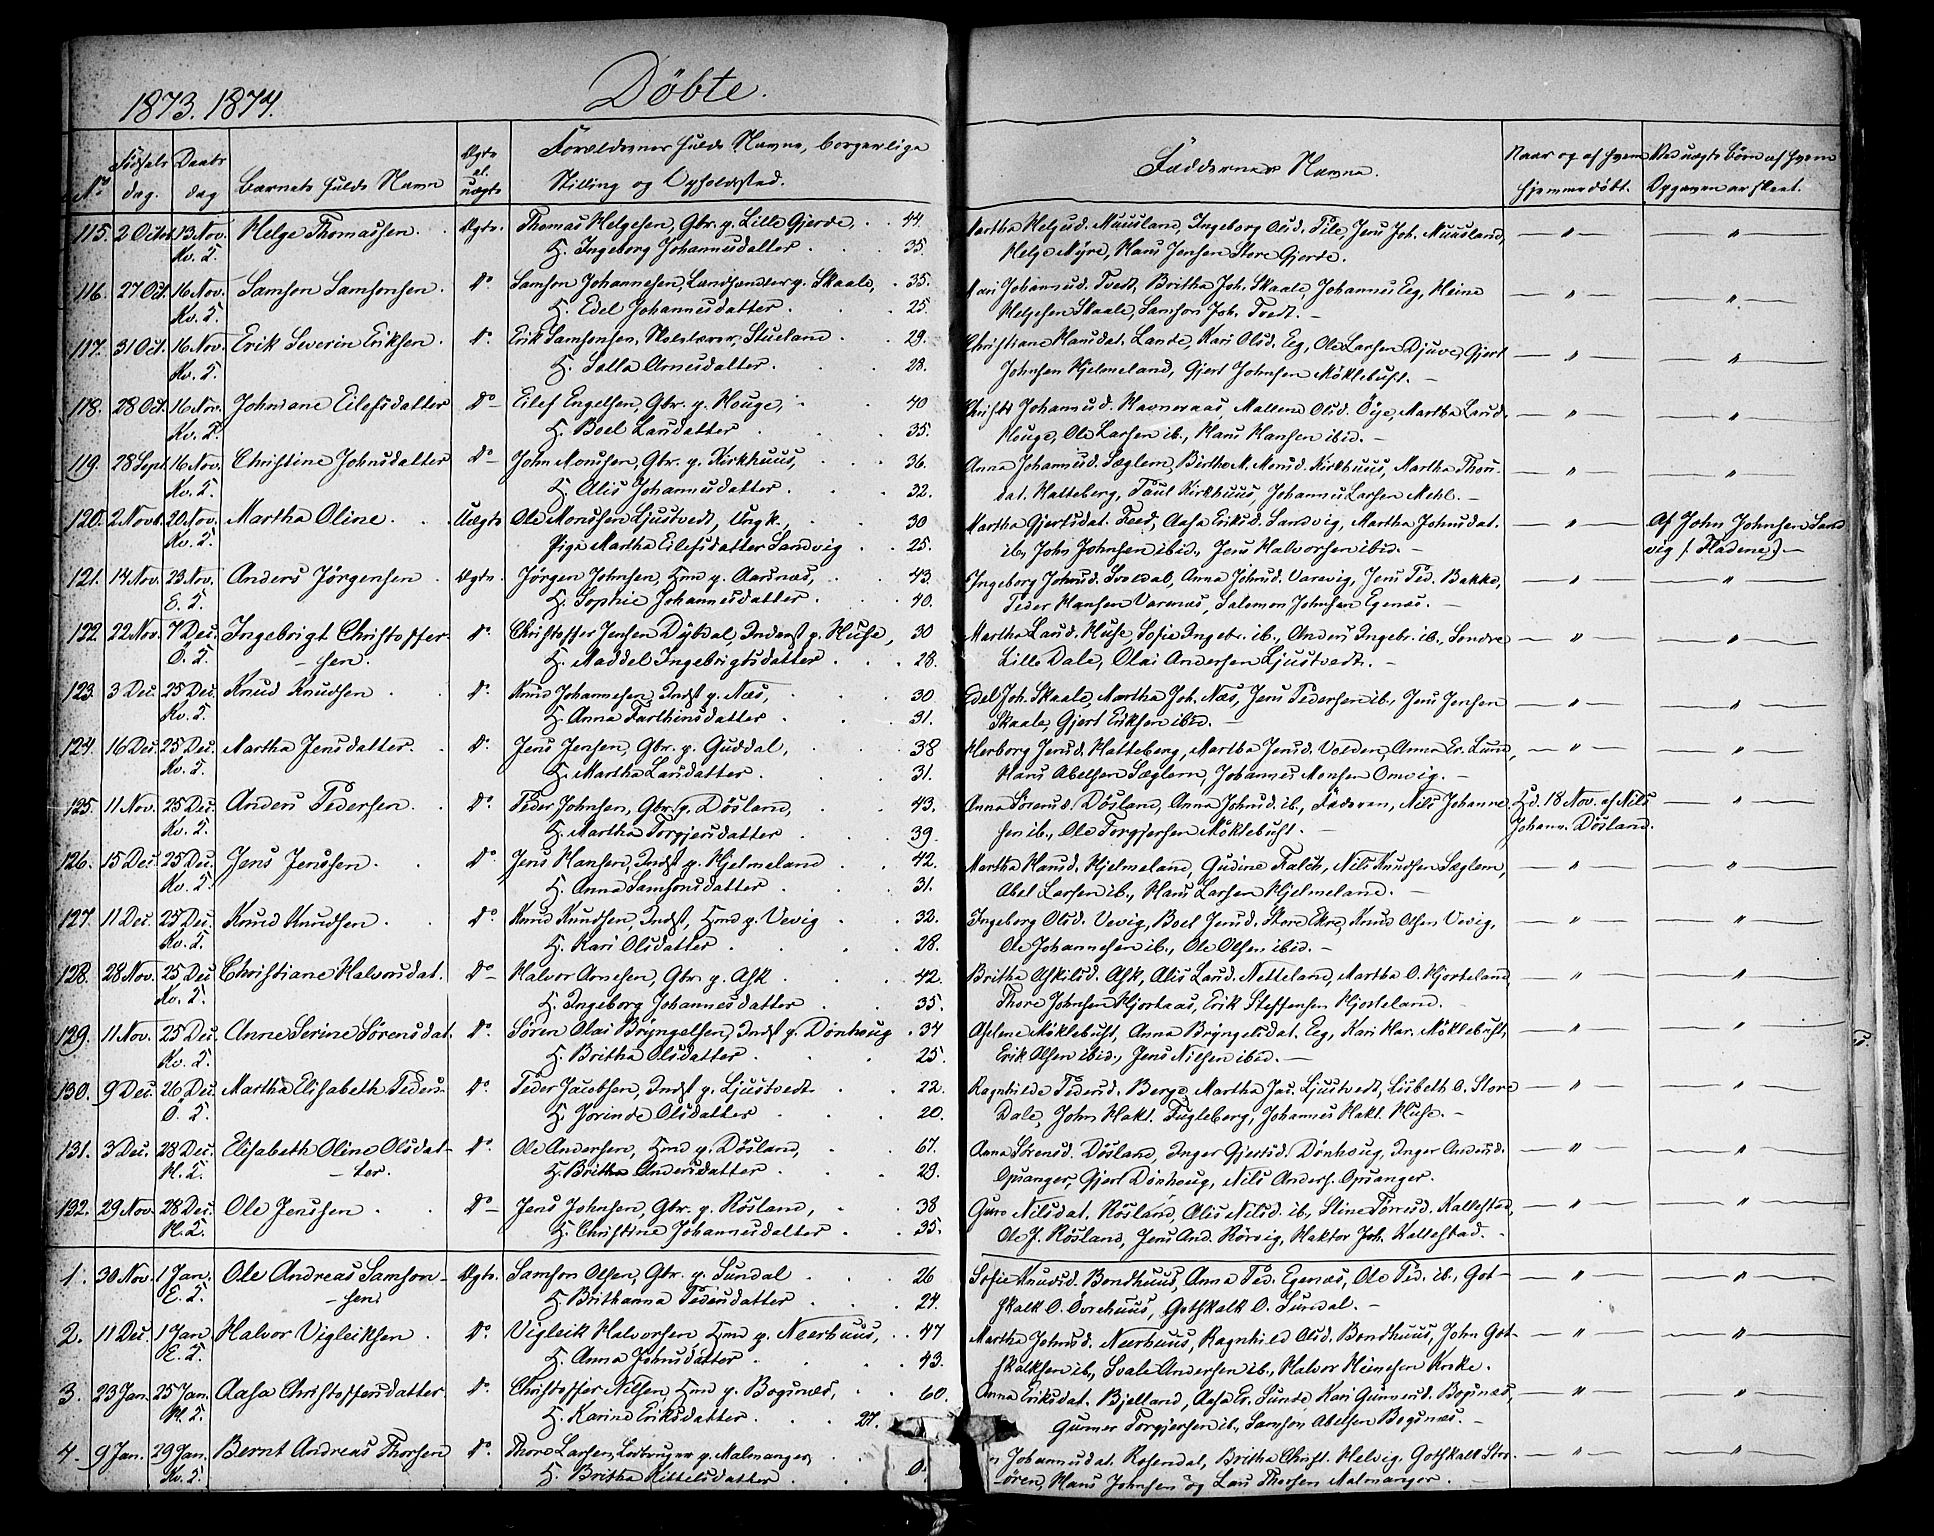 1873. 1874.
Döbte.
No
Födsels dag.
Daabs dag
Barnets fulde Navn
Ægte el. uægte
Forældrenes fulde Navne, borgerlige
Stilling og Opholdssted.
Faddernes Navne.
Naar og af hvem
hjemmedöbt.
Ved uægte Börn af hvem
Opgaven er skeet.
115. 2 Octob. 13 Nov. Helge Thomassen. Ægte. Thomas Helgesen, Gbr. p. Lille Gjerde, 44 Martha Helgesd. Muusland, Ingeborg Olsd. Tile, Jens Joh. Muusland, — " — — " —
Kv. S. H. Ingeborg Johannesdatter 35. Helge Myre, Hans Jensen Store Gjerde.
116. 27 Oct. 16 Nov. Samson Samsonsen. Do Samson Johannesen, Landhandler p. Skaale, 35. Mari Johannesd. Tvedt, Britha Joh. Skaale, Johannes Eeg, Heine — " — — " —
Kv. S. H. Edel Johannesdatter 25. Helgesen Skaale, Samson Joh. Tvedt. —
117. 31 Oct. 16 Nov. Erik Severin Eriksen. Do Erik Samsonsen, Skolelærer, Stueland 29. Christiane Hansdat. Lande, Kari Olsd. Eeg, Ole Larsen Djuve, Gjert — " — — " —
Kv. S. H. Salla Arnesdatter. 28. Johnsen Hjelmeland, Gjert Johnsen Möklebust. —
118. 28 Oct. 16 Nov. Johnane Eilefsdatter Do Eilef Engelsen, Gbr. p. Houge, 40 Christi Johannesd. Havneraas, Mallene Olsd. Öye, Martha Larsd. — " — — " —
Kv. S. H. Boel Larsdatter 35. Houge, Ole Larsen ib., Hans Hansen ibid. —
119. 28 Sept. 16 Nov. Christine Johnsdatter Do John Monsen, Gbr. p. Kirkhuus, 36. Anna Johannesd. Sæglem, Birthe M. Monsd. Kirkhuus, Martha Thorsdat. — " — — " —
Kv. S. H. Alis Johannesdatter. 32. Hatteberg, Paul Kirkhuus, Johannes Larsen Mehl. —
120. 2 Novb. 20 Nov. Martha Oline. Uægte Ole Monsen Ljustvedt, Ungk., 30 Martha Gjertsdat. Teed, Aasa Eriksd. Sandvig, Martha Johnsdat. — " — Af John Johnsen Sand
Kv. S. Pige Martha Eilefsdatter Sandvig 25. ib., John Johnsen ibid., Jens Halvorsen ibid. — vig (: Fladene :) —
121. 14 Nov. 23 Nov. Anders Jörgensen Ægte. Jörgen Johnsen, Hmd p. Aarsnæs, 43. Ingeborg Johnsd. Svoldal, Anna Johnsd. Varevig, Jens Ped. Bakke, — " — — " —
E. S. H. Sophie Johannesdatter 40. Peder Hansen Varnæs, Salomon Johnsen Egenæs. —
122. 22 Nov. 7 Dec. Ingebrigt Christoffer- Do Christoffer Jensen Dybdal, Inderst p. Huse, 30 Martha Larsd. Huse, Sofie Ingebr. ib., Anders Ingebr. ib., Sondre — " — — " —
Ö. S. sen. H. Maddel Ingebrigtsdatter 28. Lille Dale, Olai Andersen Ljustvedt. —
123. 3 Dec. 25 Dec. Knud Knudsen Do Knud Johannesen, Indst p. Næs, 30 Edel Joh. Skaale, Martha Joh. Næs, Jens Pedersen ib., Jens Jensen — " — — " —
Kv. S. H. Anna Farthinsdatter 31. Skaale, Gjert Eriksen ibid. —
124. 16 Dec. 25 Dec. Martha Jensdatter. Do Jens Jensen, Gbr. p. Guddal, 38 Herborg Jensd. Hatteberg, Martha Jensd. Valden, Anna Er. Lund, — " — — " —
Kv. S. H. Martha Larsdatter. 31. Hans Abelsen Sæglem, Johannes Monsen Omvig. —
125. 11 Nov. 25 Dec. Anders Pedersen. Do Peder Johnsen, Gbr. p. Dösland, 43. Anna Sörensd. Dösland, Anna Johnsd. ib., Faderen, Nils Johanne- Hd. 18 Nov. af Nils — " —
Kv. S. H. Martha Torgjersdatter 39. sen ib., Ole Torgjersen Möklebust. — Johann. Dösland.
126. 15 Dec. 25 Dec. Jens Jensen. Do Jens Hansen, Indst p. Hjelmeland 42. Martha Hansd. Hjelmeland, Gudine Falch, Nils Knudsen Sæglem, — " — — " —
Kv. S. H. Anna Samsonsdatter 31. Abel Larsen ib., Hans Larsen Hjelmeland. —
127. 11 Dec. 25 Dec. Knud Knudsen. Do Knud Knudsen, Indst, Hmd p. Uevig 32. Ingeborg Olsd. Uevig, Boel Jensd. Store Ekre, Knud Olsen Uevig, — " — — " —
Kv. S. H. Kari Olsdatter 28. Ole Johannesen ib., Ole Olsen ibid. —
128. 28 Nov. 25 Dec Christiane Halvorsdat. Do Halvor Arnesen, Gbr. p. Ask 42. Britha Askilsd. Ask, Alis Larsd. Netteland, Martha O. Hjorteland, — " — — " —
Kv. S. H. Ingeborg Johannesdatter 35. Thore Johnsen Hjortaas, Erik Steffensen Hjorteland.
129. 11 Nov. 25 Dec. Anne Serine Sörensdat. Do Sören Olai Bryngelsen, Indst p. Dönhoug 34 Aselene Möklebust, Anna Bryngelsdat. Eeg, Kari Har. Möklebust, — " — — " —
Kv. S. H. Britha Olsdatter 25. Erik Olsen ibid., Jens Nilsen ibid. —
130. 9 Dec. 26 Dec. Martha Elisabeth Peders- Do Peder Jacobsen, Indst p. Ljustvedt 22. Ragnhilde Pedersd. Berge, Martha Jac. Ljustvedt, Lisbeth O. Store — " — — " —
Ö. S. H. Jorinde Olsdatter 20. Dale, John Hakt. Fugleberg, Johannes Hakt. Huse. —
131. 3 Dec. 28 Dec. Elisabeth Oline Olsdat- Do Ole Andersen, Hmd p. Dösland, 67. Anna Sörensd. Dösland, Inger Gjertsd. Dönhoug, Inger Andersd. — " — — " —
H. S. ter. H. Britha Andersdatter 29. Opsanger, Gjert Dönhoug, Nils Anders. Opsanger.
132. 29 Nov. 28 Dec. Ole Jensen Do Jens Johnsen, Gbr. p. Rösland, 38 Guro Nilsdat. Rösland, Alis Nilsd. ib., Stine Törresd. Kallestad, — " — — " —
H. S. H. Christine Johannesdatter 35. Ole J. Rösland, Jens And. Rörvig, Haktor Joh. Kallestad. —
1. 30 Nov. 1 Jan. Ole Andreas Samson- Ægte. Samson Olsen, Gbr. p. Sundal 26 Sofie Knudsd. Bondhuus, Anna Ped. Egenæs, Ole Ped. ib., Got- — " — — " —
E. S. sen H. Brithanna Pedersdatter 24. skalk O. Övrehuus, Gotskalk O. Sundal. —
2. 11 Dec. 1 Jan Halvor Vigleiksen Do Vigleik Halvorsen Hmd p. Neerhuus, 47 Martha Johnsd. Neerhuus, Ragnhild Olsd. Bondhuus, John Got- — " — — " —
E. S. H. Anna Johnsdatter 43. skalksen ib., Svale Andersen ib., Halvor Heinesen Kroke.
3. 23 Jan. 25 Jan. Aasa Christoffersdatter Do Christoffer Nilsen, Hmd p. Bogsnæs, 60. Anna Eriksdat. Bjelland, Aasa Er. Sunde, Kari Gunnersd. Bogsnæs, — " — — " —
H. S. H. Karine Eriksdatter 27. Gunner Torgjersen ib., Samson Abelsen Bogsnæs. —
4. 9 Jan. 29 Jan. Bernt Andreas Thorsen Do Thore Larsen, Leibruger p. Malmanger, Johannesdat. Rosendal, Britha Christ. Helvig, Gotskalk Sör- — " — — " —
Kv. S. H. Britha Kittelsdatter. 0. ören, Hans Johnsen og Lars Thorsen Malmanger.